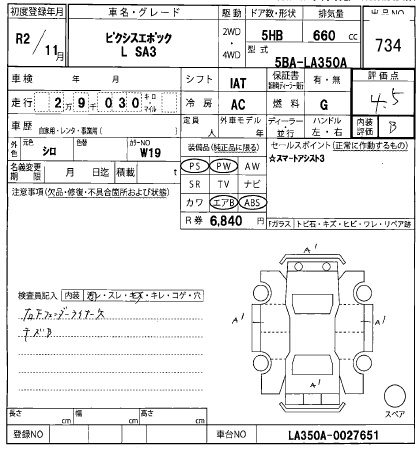 初度登録年月 車名・グレード 駆動 ドア数・形状 排気量 出品NO
R2/11月 ピクシスエポック 2WD・4WD 5HB 660 cc 734
L SA3 型式 5BA-LA350A
車検 年 月 シフト IAT 保証書 有・無 評価点
走行 2万9千030 キロ・マイル 冷房 AC 燃料 G 4.5
車歴 自家用・レンタ・事業用( ) 定員 人 外車モデル 年 ディーラー・並行 ハンドル 左・右 内装評価 B
外色 元色 シロ 色替 カラーNO W19 装備品(純正品に限る) セールスポイント (正常に作動するもの)
名義変更期限 月 日迄 積載 t PS PW AW ☆スマートアシスト3
注意事項(欠品・修復・不具合箇所および状態) SR TV ナビ
カワ エアB ABS
R券 6,840 円 Fガラス トビ石・キズ・ヒビ・ワレ・リペア跡
A'
検査員記入 内装 汚レ・スレ・キズ・キレ・コゲ・穴
A' A'
キズB
A'
スペア
長さ cm 幅 cm 高さ cm
登録NO 車台NO LA350A-0027651